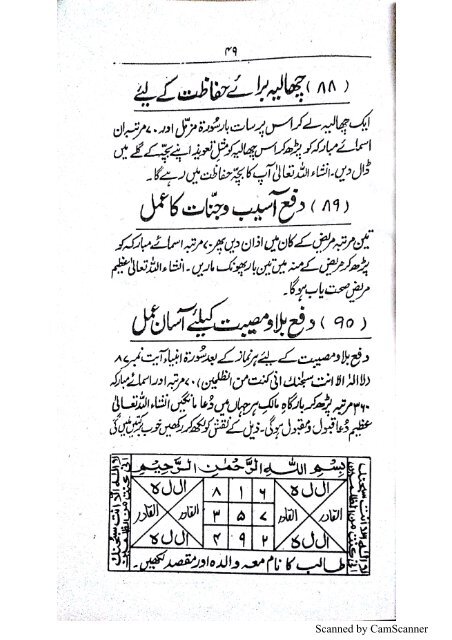 ۴۹
(۸۸) چھالیہ برائے حفاظت کے لئے
ایک چھالیہ لے کر اس پر سات بار سورۃ مزمل اور ۷۰ مرتبہ ان
اسمائے مبارکہ کو پڑھ کر اس چھالیہ کو مثل تعویذ اپنے بچّہ کے گلے میں
ڈال دیں۔ انشاء اللہ تعالیٰ آپ کا بچّہ حفاظت میں رہے گا۔
(۸۹) دفع آسیب و جنّات کا عمل
تین مرتبہ مریض کے کان میں اذان دیں پھر ۷۰ مرتبہ اسمائے مبارکہ کو
پڑھ کر مریض کے منہ میں تین بار پھونک ماریں۔ انشاء اللہ تعالیٰ عظیم
مریض صحت یاب ہوگا۔
(۹۰) دفع بلا و مصیبت کیلئے آسان عمل
دفع بلا و مصیبت کے لیے ہر نماز کے بعد سُورۃ انبیاء آیت نمبر ۸۷
(لا الٰہ الا انت سبحٰنک انی کنت من الظٰلمین) ۷۰ مرتبہ اور اسمائے مبارکہ
۳۶۰ مرتبہ پڑھ کر بارگاہِ مالکِ ہر جہاں میں دُعا مانگیں انشاء اللہ تعالیٰ
عظیم دُعا قبول و مقبول ہوگی۔ ذیل کے نقش کو لکھ کر رکھیں خوب برکتیں ہیں گی
بسم اللہ الرحمٰن الرحیم
لا الٰہ الا انت سبحٰنک
انی کنت من الظٰلمین
ال لہ
۸ ۱ ۶
ال لہ
القادر القادر
۳ ۵ ۷
القادر القادر
ال لہ
۴ ۹ ۲
ال لہ
لا الٰہ الا انت سبحٰنک
انی کنت من الظٰلمین
طالب کا نام معہ والدہ اور مقصد لکھیں۔
Scanned by CamScanner